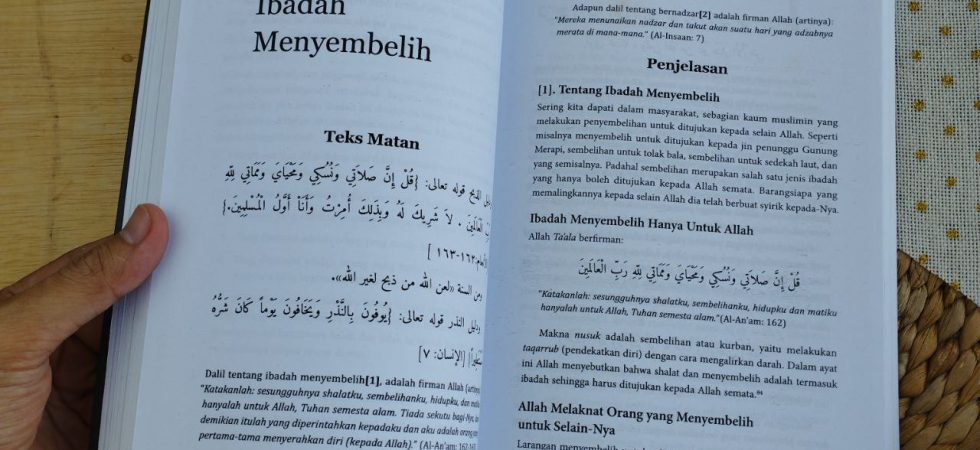 Ibadah
Menyembelih
Teks Matan
الذبح قوله تعالى: {قُلْ إِنَّ صَلَاتِي وَنُسُكِي وَمَحْيَايَ وَمَمَاتِي لِلَّهِ
الْعَالَمِينَ . لَا شَرِيكَ لَهُ وَبِذَلِكَ أُمِرْتُ وَأَنَاْ أَوَّلُ الْمُسْلِمِينَ.}
١٦٢-١٦٣ ]
ومن السنة «لعن الله من ذبح لغير الله».
ودليل النذر قوله تعالى: {يُوفُونَ بِالنَّذْرِ وَيَخَافُونَ يَوْماً كَانَ شَرُّهُ
[الإنسان: ٧]
Dalil tentang ibadah menyembelih[1], adalah firman Allah
"Katakanlah: sesungguhnya shalatku, sembelihanku, hidupku, dan
hanyalah untuk Allah, Tuhan semesta alam. Tiada sekutu bagi-Nya,
demikian itulah yang diperintahkan kepadaku dan aku adalah
pertama-tama menyerahkan diri (kepada Allah)." (Al-An'am:
Adapun dalil tentang bernadzar[2] adalah firman Allah (artinya):
"Mereka menunaikan nadzar dan takut akan suatu hari yang adzabnya
merata di mana-mana." (Al-Insaan: 7)
Penjelasan
[1]. Tentang Ibadah Menyembelih
Sering kita dapati dalam masyarakat, sebagian kaum muslimin yang
melakukan penyembelihan untuk ditujukan kepada selain Allah. Seperti
misalnya menyembelih untuk ditujukan kepada jin penunggu Gunung
Merapi, sembelihan untuk tolak bala, sembelihan untuk sedekah laut, dan
yang semisalnya. Padahal sembelihan merupakan salah satu jenis ibadah
yang hanya boleh ditujukan kepada Allah semata. Barangsiapa yang
memalingkannya kepada selain Allah dia telah berbuat syirik kepada-Nya.
Ibadah Menyembelih Hanya Untuk Allah
Allah Ta'ala berfirman:
قُلْ إِنَّ صَلَاتِي وَنُسُكِي وَمَحْيَايَ وَمَمَاتِي لِلَّهِ رَبِّ الْعَالَمِينَ
"Katakanlah: sesungguhnya shalatku, sembelihanku, hidupku dan matiku
hanyalah untuk Allah, Tuhan semesta alam."(Al-An'am: 162)
Makna nusuk adalah sembelihan atau kurban, yaitu melakukan
taqarrub (pendekatkan diri) dengan cara mengalirkan darah. Dalam ayat
ini Allah menyebutkan bahwa shalat dan menyembelih adalah termasuk
ibadah sehingga harus ditujukan kepada Allah semata.⁶⁴
Allah Melaknat Orang yang Menyembelih
untuk Selain-Nya
Larangan menyembelih